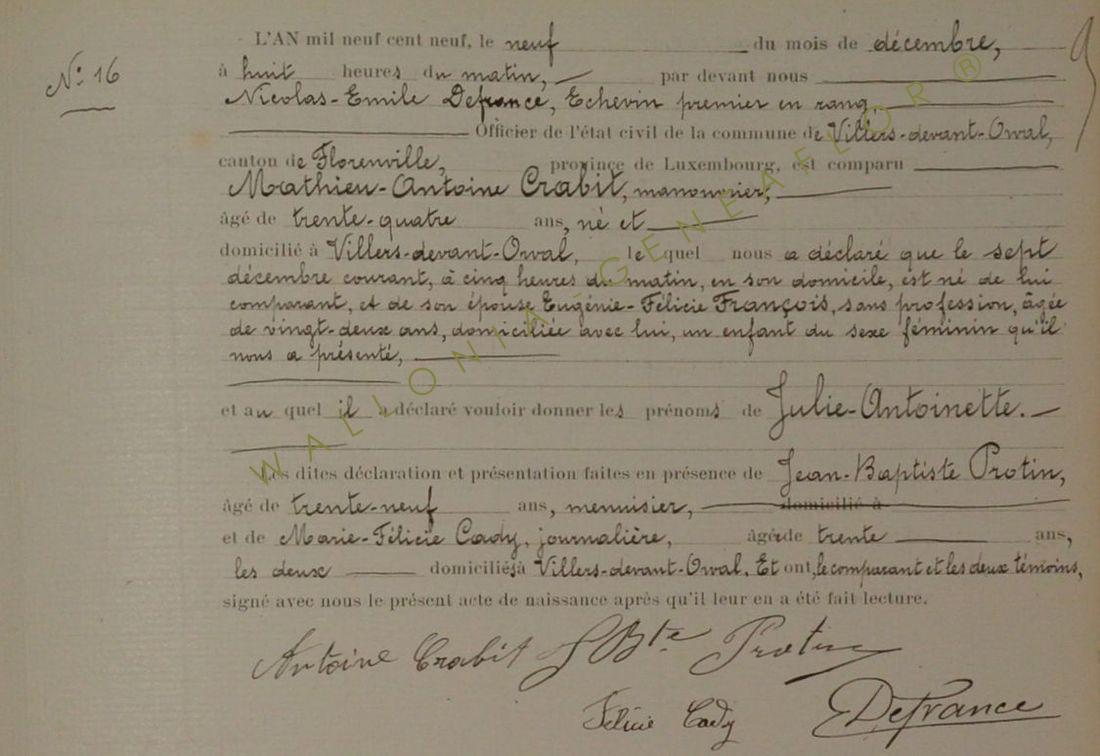 L'AN mil neuf cent neuf, le neuf du mois de décembre,
N° 16
à huit heures du matin, par devant nous
Nicolas-Emile Defrance, Echevin premier en rang,
Officier de l'état civil de la commune de Villers-devant-Orval,
canton de Florenville, province de Luxembourg, est comparu
Mathieu-Antoine Crabit, manouvrier,
âgé de trente-quatre ans, né et
domicilié à Villers-devant-Orval, lequel nous a déclaré que le sept
décembre courant, à cinq heures du matin, en son domicile, est né de lui
comparant, et de son épouse Eugénie-Félicie François, sans profession, âgée
de vingt-deux ans, domiciliée avec lui, un enfant du sexe féminin qu'il
nous a présenté,
et auquel il a déclaré vouloir donner les prénoms de Julie-Antoinette.
Les dites déclaration et présentation faites en présence de Jean-Baptiste Protin,
âgé de trente-neuf ans, menuisier, domicilié à
et de Marie-Félicie Cady, journalière, âgée de trente ans,
les deux domiciliés à Villers-devant-Orval. Et ont, le comparant et les deux témoins,
signé avec nous le présent acte de naissance après qu'il leur en a été fait lecture.
Antoine Crabit JBte Protin
Félicie Cady Defrance
WALLONIA-GENEAFLOR ®